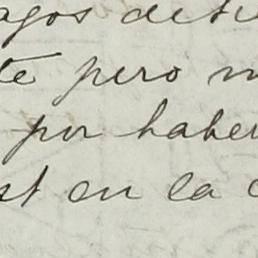 agos
te pero
por haber
st en la